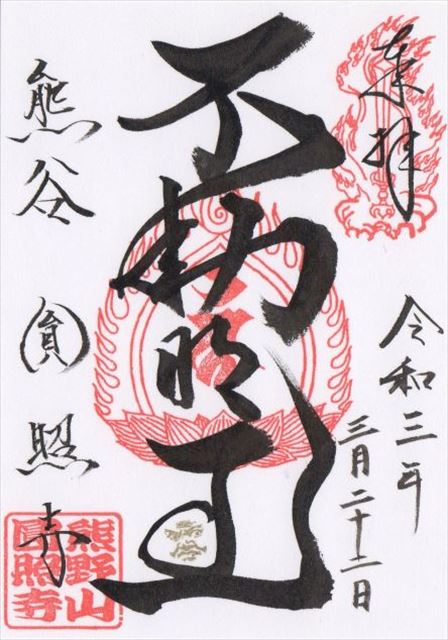 奉拝
令和三年
三月二十二日
不動明王
熊谷 圓照寺
熊野山
圓照寺